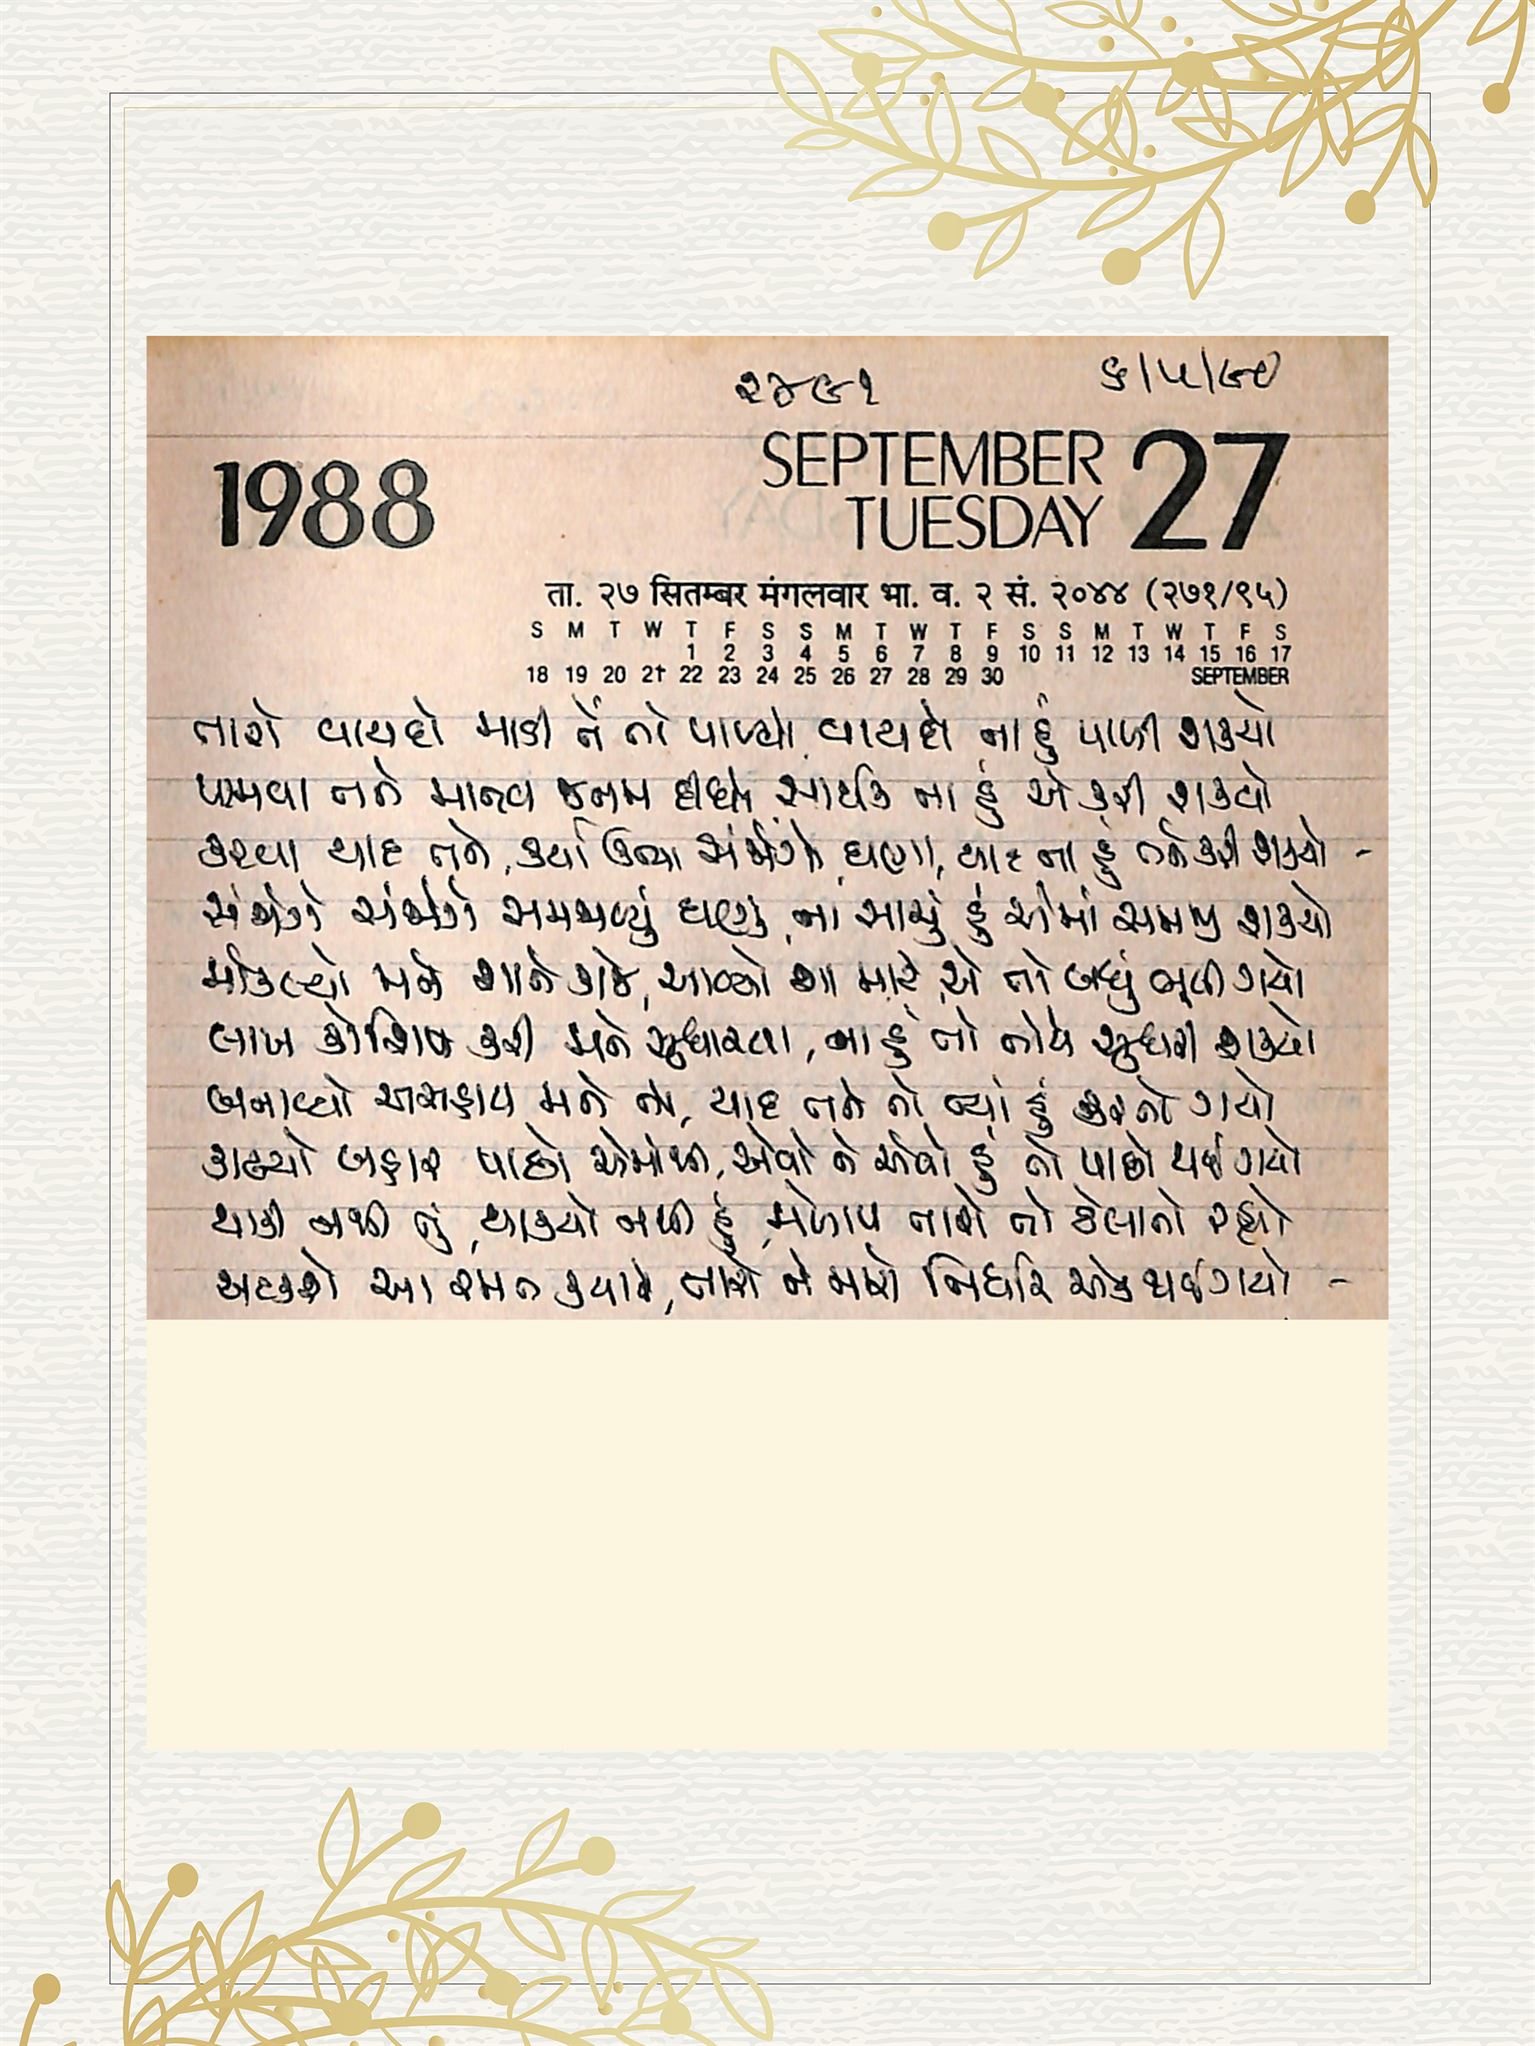 ૨૪૯૧
૬/૫/૯૦
1988
SEPTEMBER 27
TUESDAY
ता. २७ सितम्बर मंगलवार भा. व. २ सं. २०४४ (२७१/९५)
S M T W T F S S M T W T F S S M T W T F S
1 2 3 4 5 6 7 8 9 10 11 12 13 14 15 16 17
18 19 20 21 22 23 24 25 26 27 28 29 30 SEPTEMBER
તારો વાયદો માડી તેં તો પાળ્યો વાયદો ના હું પાળી શક્યો
પામવા તને માનવ જનમ દીધો, સાર્થક ના હું એ કરી શક્યો
કરવા યાદ તને, કર્યા ઉભા સંજોગો ઘણા, યાદ ના હું તને કરી શક્યો -
સંજોગે સંજોગે સમજાવ્યું ઘણું, ના સાચું હું એમાં સમજી શક્યો
મોકલ્યો મને શાને કાજે, આવ્યો શા માટે, એ તો બધું ભૂલી ગયો
લાખ કોશિષ કરી મને સુધારવા, ના હું તો તોયે સુધરી શક્યો
બનાવ્યો અસહાય મને તેં, યાદ તને તો ત્યાં હું કરતો ગયો
કાઢ્યો બહાર પાછો એમાંથી, એવો ને એવો હું તો પાછો થઈ ગયો
થાકી નથી તું, થાક્યો નથી હું, મેળાપ તારો તો ઠેલાતો રહ્યો
અટકશે આ રમત ક્યારે, તારો ને મારો નિર્ધાર એક થઈ ગયો -